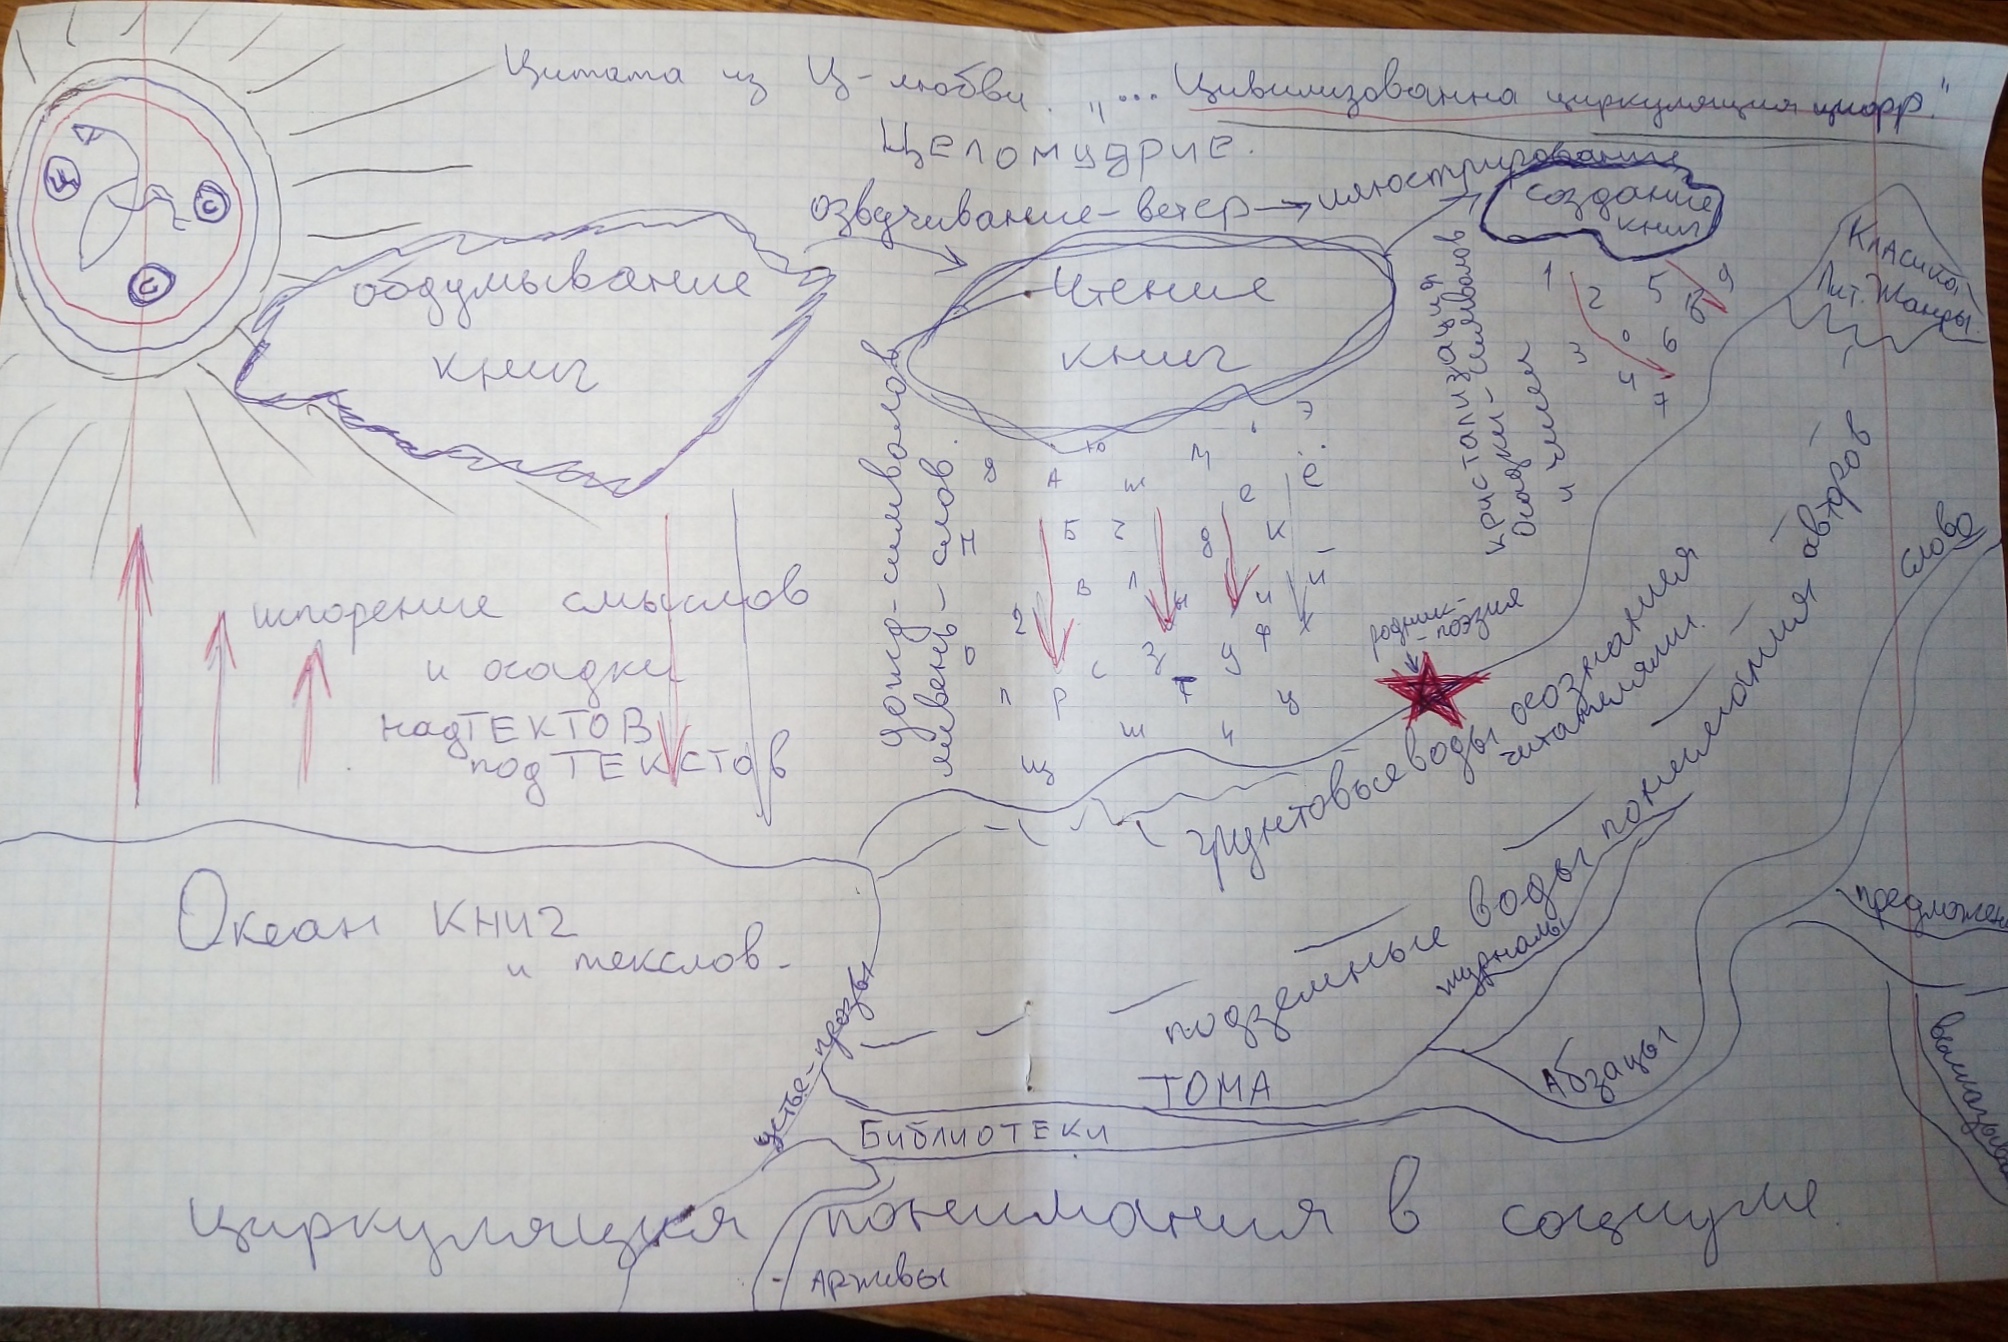 Цитата из Ц-любви. „... Цивилизованна циркуляция цифр."
Целомудрие.
озвучивание-ветер → илюстрирование
создание
книг
Ц
С
С
обдумывание
книг
Чтение
книг
Класика,
Лит. Жанры.
дожд-символов
ливень-слов.
кристализация
осадки-символов
и чисел
1 2 5 9
3 0 6 6
4 7
Я А Ю Ж М Е Ё Э
П Б Ч Д К
В Л Ы И Й
2 О С З У Ф Х
Л Р Т Ц
Щ Ш Ч
шпорение смыслов
и осадки
надТЕКТОВ
подТЕКСТОВ
родник-
-поэзия
грунтовые воды осознания
читателями.
подземные воды понимания авторов
слова
предложен
журналы
Абзацы
ТОМА
Океан книг
и текслов-
устье-прозы
БИБЛИОТЕКИ
циркуляция понимания в социуме.
Арживы